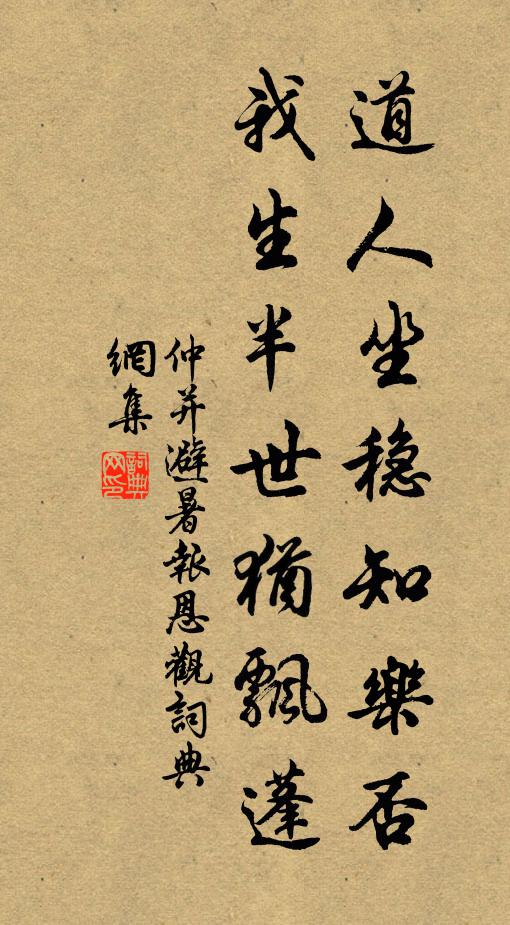 道人坐稳知樂否
我生半世猶飄蓬
仲并避暑報恩觀詞典
網集
詞典網印